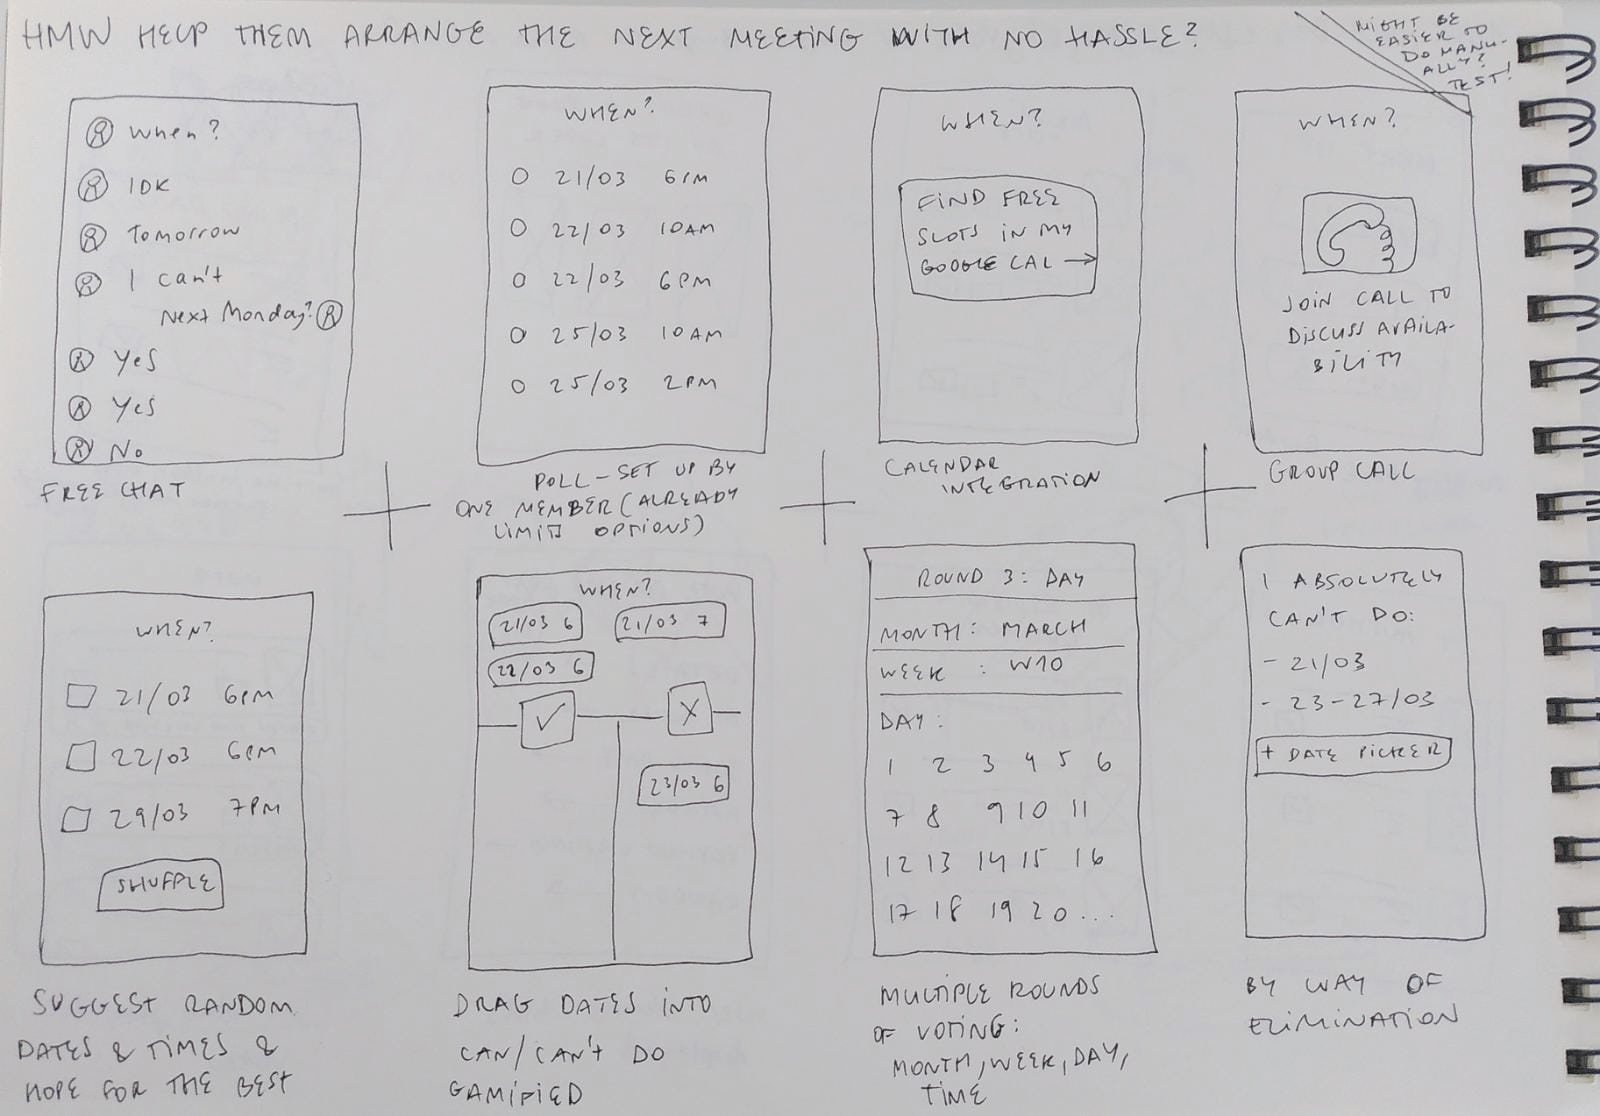 HMW HELP THEM ARRANGE THE NEXT MEETING WITH NO HASSLE?
MIGHT BE
EASIER TO
DO MANU-
ALLY?
TEST!
When?
IDK
Tomorrow
I can't
Next Monday?
Yes
Yes
No
FREE CHAT
WHEN?
21/03 6PM
22/03 10AM
22/03 6PM
25/03 10AM
25/03 2PM
POLL - SET UP BY
ONE MEMBER (ALREADY
LIMITS OPTIONS)
WHEN?
FIND FREE
SLOTS IN MY
GOOGLE CAL →
CALENDAR
INTEGRATION
WHEN?
JOIN CALL TO
DISCUSS AVAILA-
BILITY
GROUP CALL
WHEN?
21/03 6PM
22/03 6PM
29/03 7PM
SHUFFLE
SUGGEST RANDOM
DATES & TIMES &
HOPE FOR THE BEST
WHEN?
21/03 6 21/03 7
22/03 6
23/03 6
DRAG DATES INTO
CAN/CAN'T DO
GAMIFIED
ROUND 3: DAY
MONTH: MARCH
WEEK : W10
DAY:
1 2 3 4 5 6
7 8 9 10 11
12 13 14 15 16
17 18 19 20...
MULTIPLE ROUNDS
OF VOTING:
MONTH, WEEK, DAY,
TIME
I ABSOLUTELY
CAN'T DO:
- 21/03
- 23-27/03
+ DATE PICKER
BY WAY OF
ELIMINATION